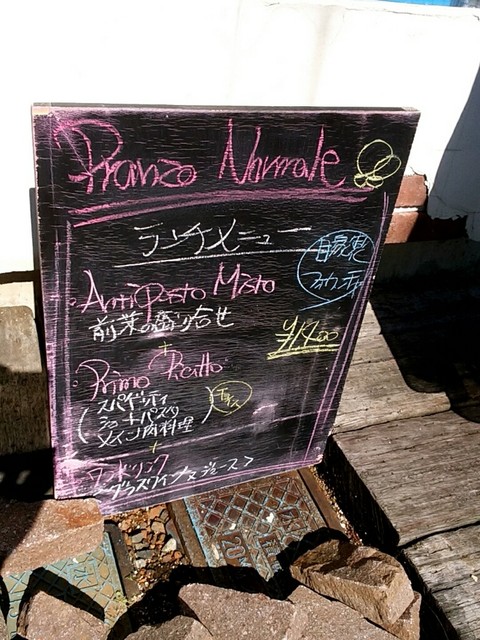 Pranzo Normale
ランチメニュー
自家製
フォカッチャ
Antipasto Misto
前菜の盛り合せ
+
Primo Piatto
スパゲッティ
ショートパスタ
メイン肉料理
+
ワンドリンク
グラスワイン
ジュース